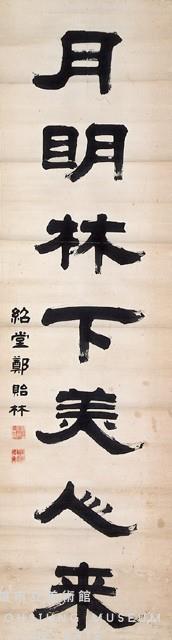 月明林下美人来
紹堂鄭貽林
美術館
MUSEUM